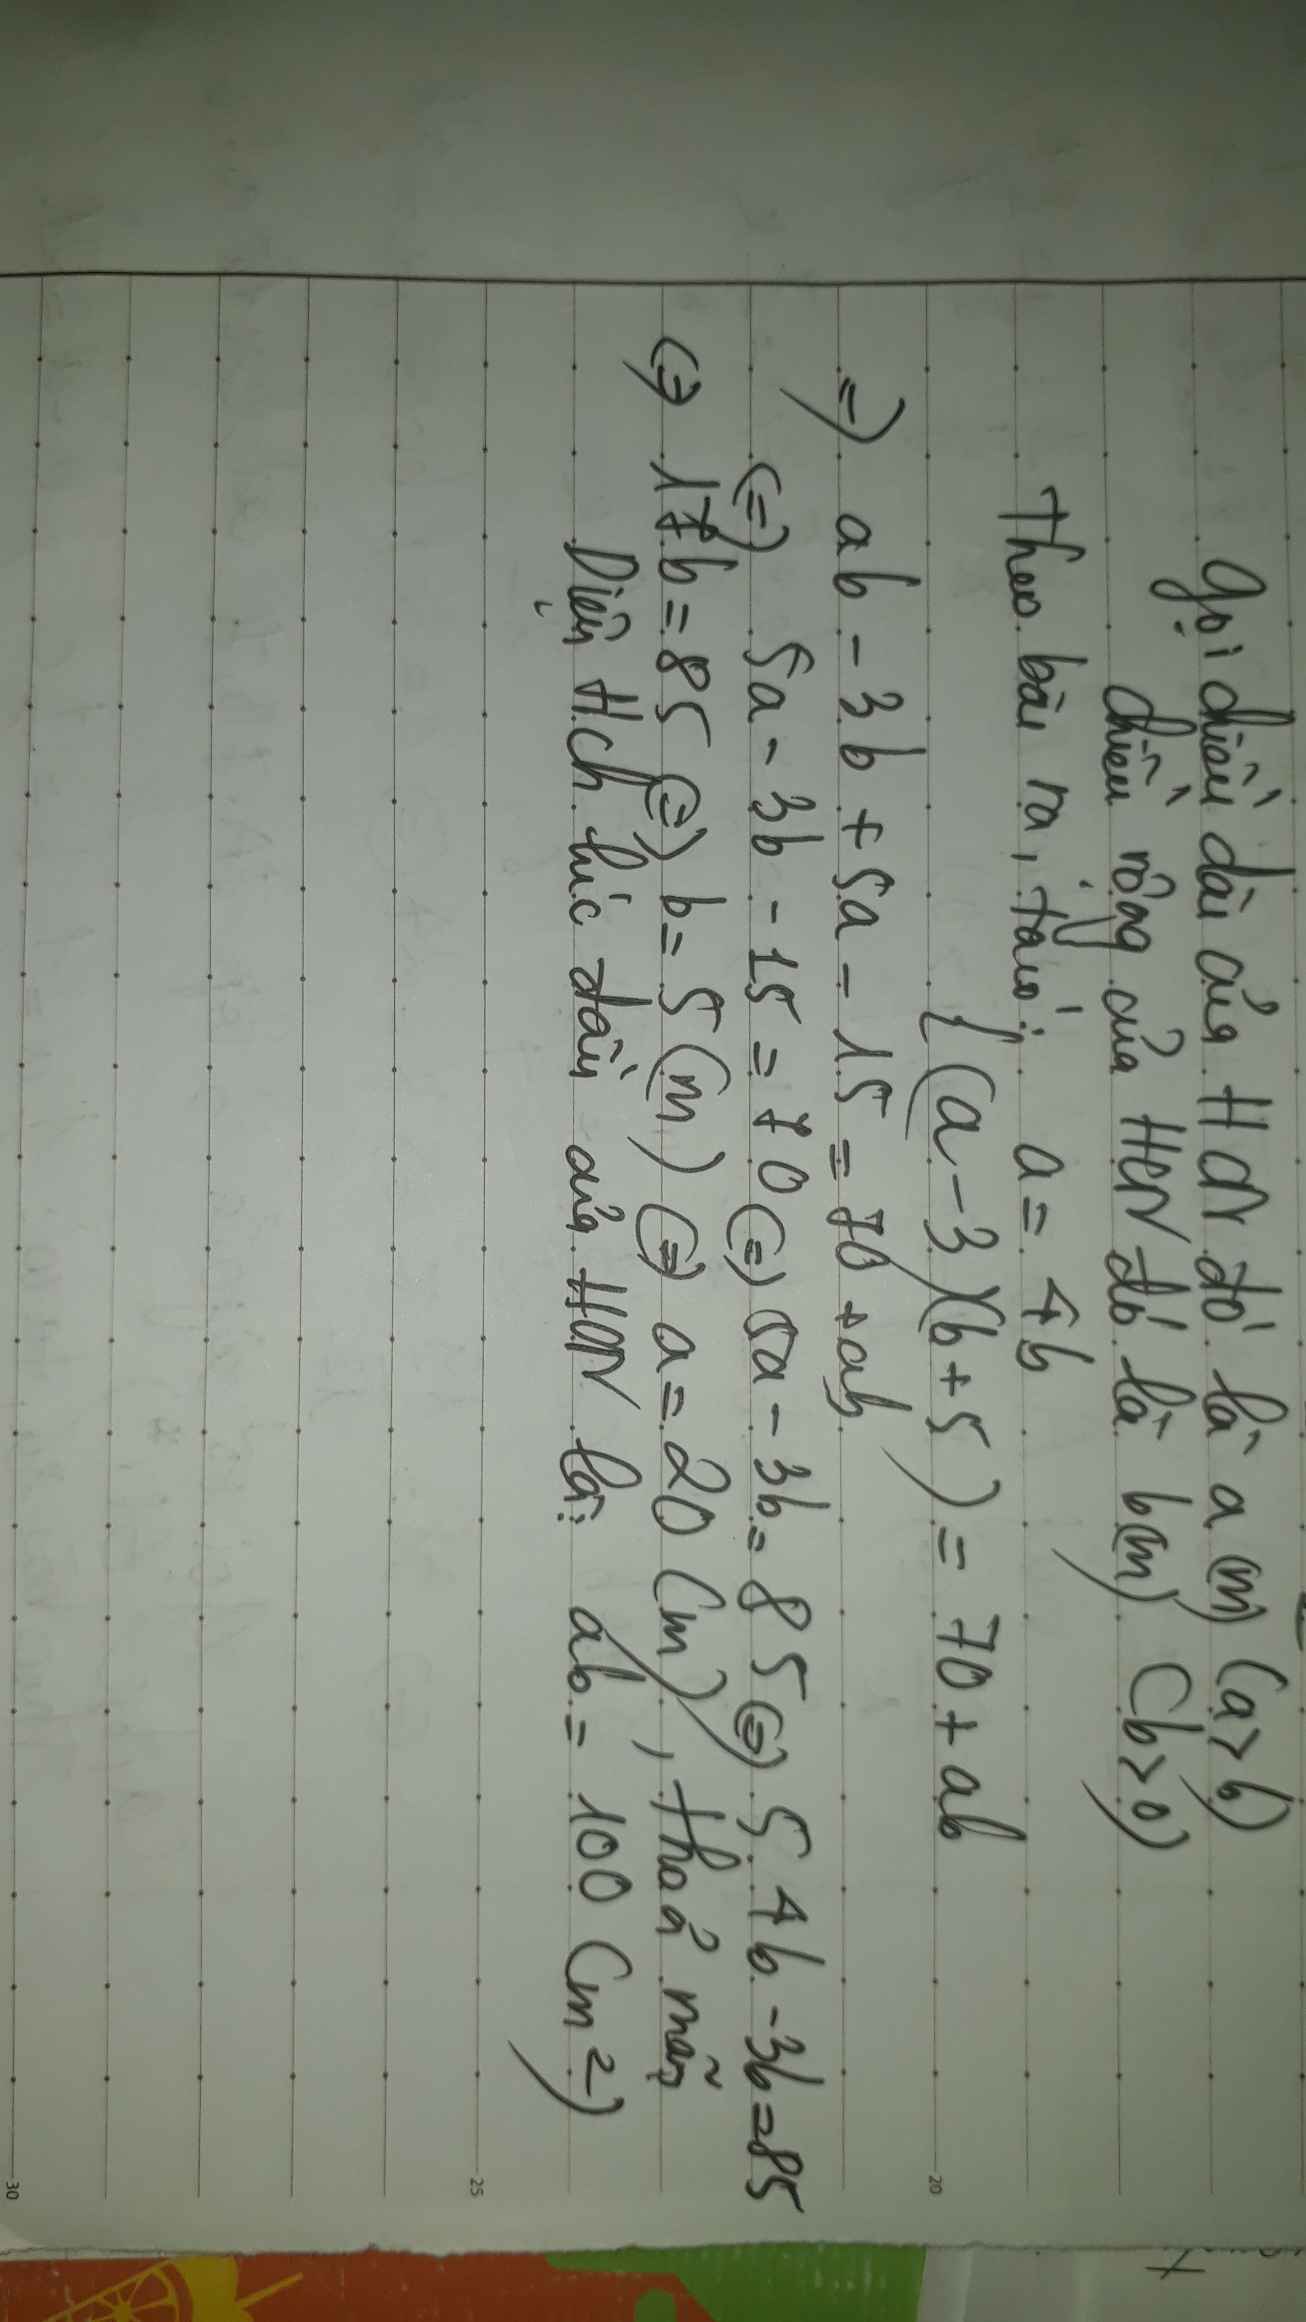 Gọi chiều dài của HCN đó là a (m) (a > b)
chiều rộng của HCN đó là b (m) (b > 0)
Theo bài ra, ta có: a = 4b
{ (a - 3)(b + 5) = 70 + ab
=> ab - 3b + 5a - 15 = 70 + ab
(=) 5a - 3b - 15 = 70 (=) 5a - 3b = 85 (=) 5.4b - 3b = 85
(=) 17b = 85 (=) b = 5 (m) (=) a = 20 (m), thoả mãn
Diện tích lúc đầu của HCN là: ab = 100 (m2)
20
25
30